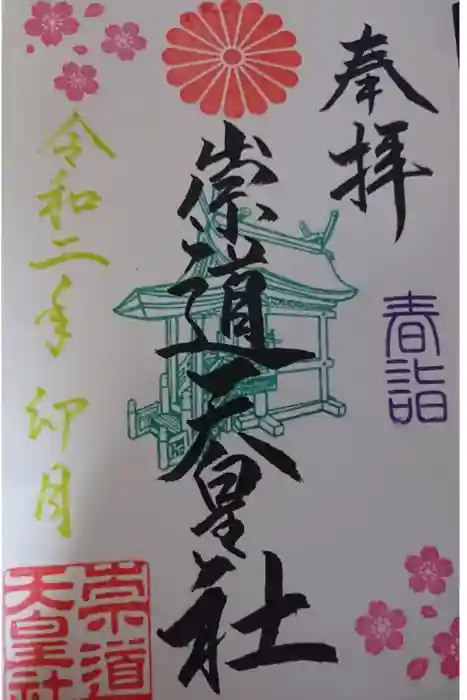 奉拝
春詣
崇道天皇社
令和二年 卯月
崇道
天皇社